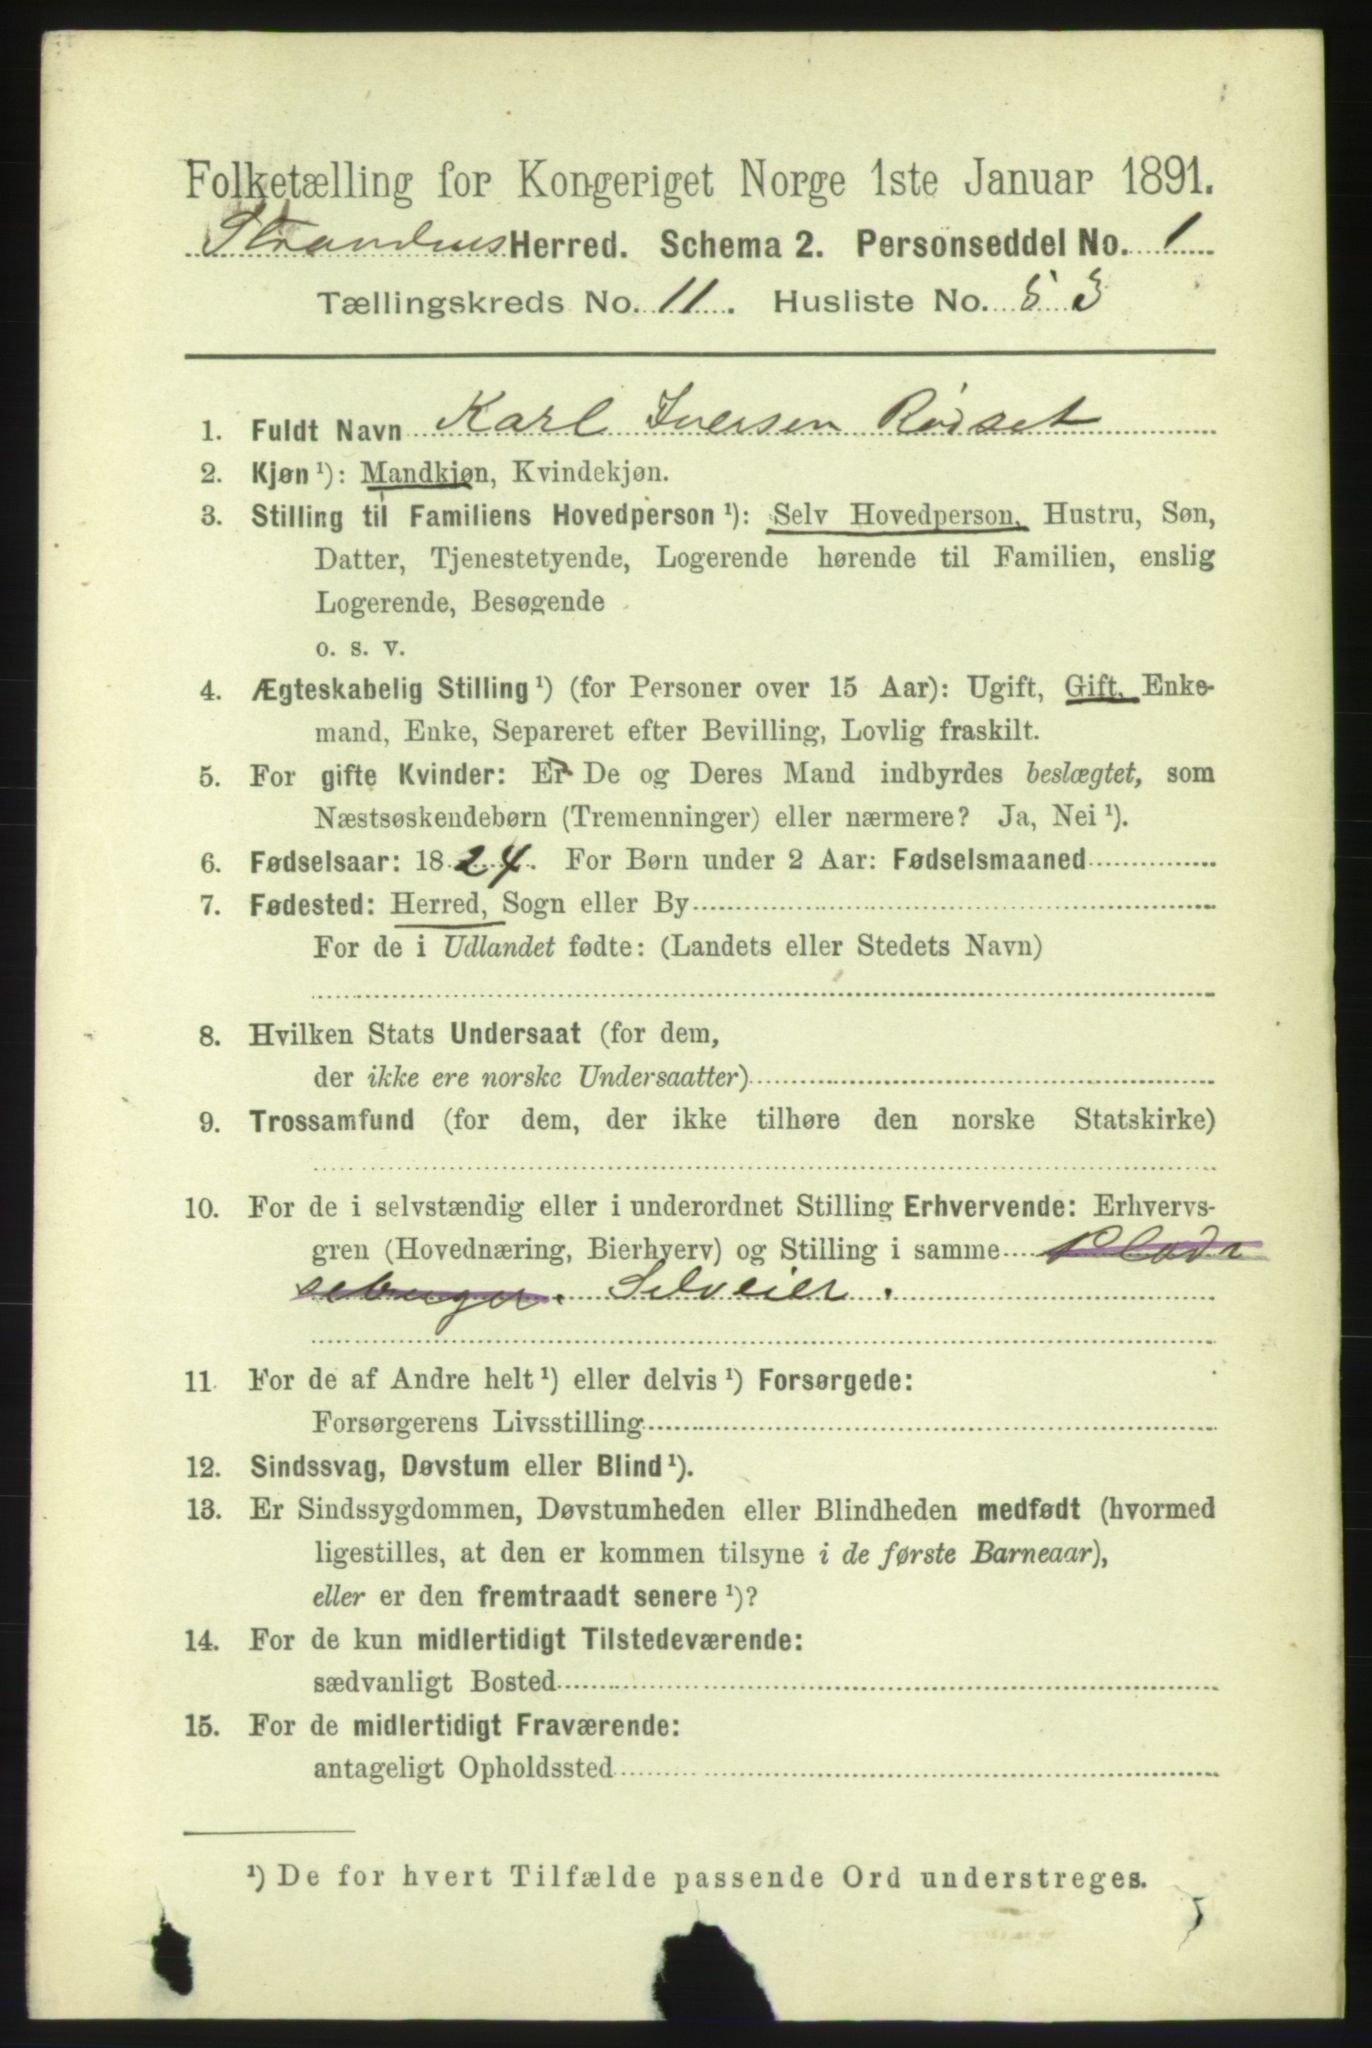 Folketælling for Kongeriget Norge 1ste Januar 1891.
Strandens Herred. Schema 2. Personseddel No. 1
Tællingskreds No. 11. Husliste No. 53
1. Fuldt Navn Karl Iversen Rødset
2. Kjøn ¹): Mandkjøn, Kvindekjøn.
3. Stilling til Familiens Hovedperson ¹): Selv Hovedperson, Hustru, Søn,
Datter, Tjenestetyende, Logerende hørende til Familien, enslig
Logerende, Besøgende
o. s. v.
4. Ægteskabelig Stilling ¹) (for Personer over 15 Aar): Ugift, Gift, Enke-
mand, Enke, Separeret efter Bevilling, Lovlig fraskilt.
5. For gifte Kvinder: Er De og Deres Mand indbyrdes beslægtet, som
Næstsøskendebørn (Tremenninger) eller nærmere? Ja, Nei ¹).
6. Fødselsaar: 1824. For Børn under 2 Aar: Fødselsmaaned
7. Fødested: Herred, Sogn eller By
For de i Udlandet fødte: (Landets eller Stedets Navn)
8. Hvilken Stats Undersaat (for dem,
der ikke ere norske Undersaatter)
9. Trossamfund (for dem, der ikke tilhøre den norske Statskirke)
10. For de i selvstændig eller i underordnet Stilling Erhvervende: Erhvervs-
gren (Hovednæring, Bierhverv) og Stilling i samme
Selveier.
11. For de af Andre helt ¹) eller delvis ¹) Forsørgede:
Forsørgerens Livsstilling
12. Sindssvag, Døvstum eller Blind ¹).
13. Er Sindssygdommen, Døvstumheden eller Blindheden medfødt (hvormed
ligestilles, at den er kommen tilsyne i de første Barneaar),
eller er den fremtraadt senere ¹)?
14. For de kun midlertidigt Tilstedeværende:
sædvanligt Bosted
15. For de midlertidigt Fraværende:
antageligt Opholdssted
¹) De for hvert Tilfælde passende Ord understreges.